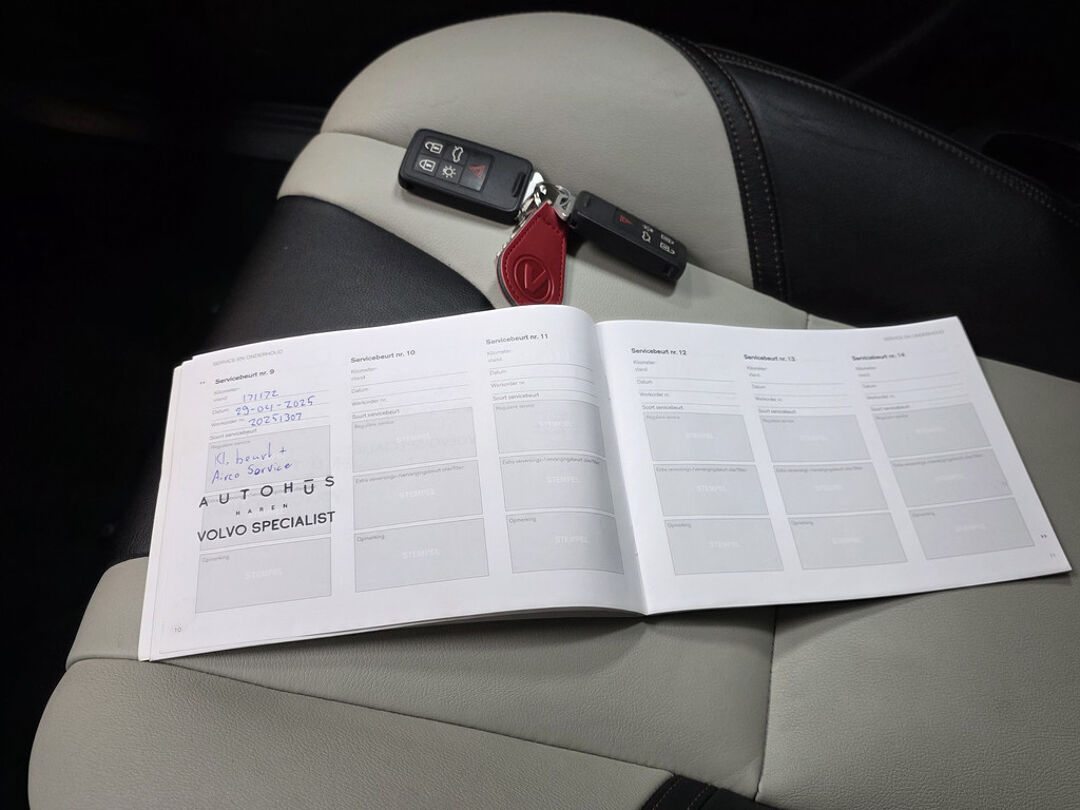 SERVICE EN ONDERHOUD
Servicebeurt nr. 9
Kilometer-
stand 171172
Datum 29-04-2025
Werkorder nr. 20251307
Soort servicebeurt
Reguliere service
Kl. beurt +
Airco Service
AUTOHŪS
HAREN
VOLVO SPECIALIST
Opmerking
STEMPEL
10
Servicebeurt nr. 10
Kilometer-
stand
Datum
Werkorder nr.
Soort servicebeurt
Reguliere service
STEMPEL
Extra verversings-/vervangingsbeurt olie/filter
STEMPEL
Opmerking
STEMPEL
Servicebeurt nr. 11
Kilometer-
stand
Datum
Werkorder nr.
Soort servicebeurt
Reguliere service
STEMPEL
Extra verversings-/vervangingsbeurt olie/filter
STEMPEL
Opmerking
STEMPEL
SERVICE EN ONDERHOUD
Servicebeurt nr. 12
Kilometer-
stand
Datum
Werkorder nr.
Soort servicebeurt
Reguliere service
STEMPEL
Extra verversings-/vervangingsbeurt olie/filter
STEMPEL
Opmerking
STEMPEL
Servicebeurt nr. 13
Kilometer-
stand
Datum
Werkorder nr.
Soort servicebeurt
Reguliere service
STEMPEL
Extra verversings-/vervangingsbeurt olie/filter
STEMPEL
Opmerking
STEMPEL
Servicebeurt nr. 14
Kilometer-
stand
Datum
Werkorder nr.
Soort servicebeurt
Reguliere service
STEMPEL
Extra verversings-/vervangingsbeurt olie/filter
STEMPEL
Opmerking
STEMPEL
11